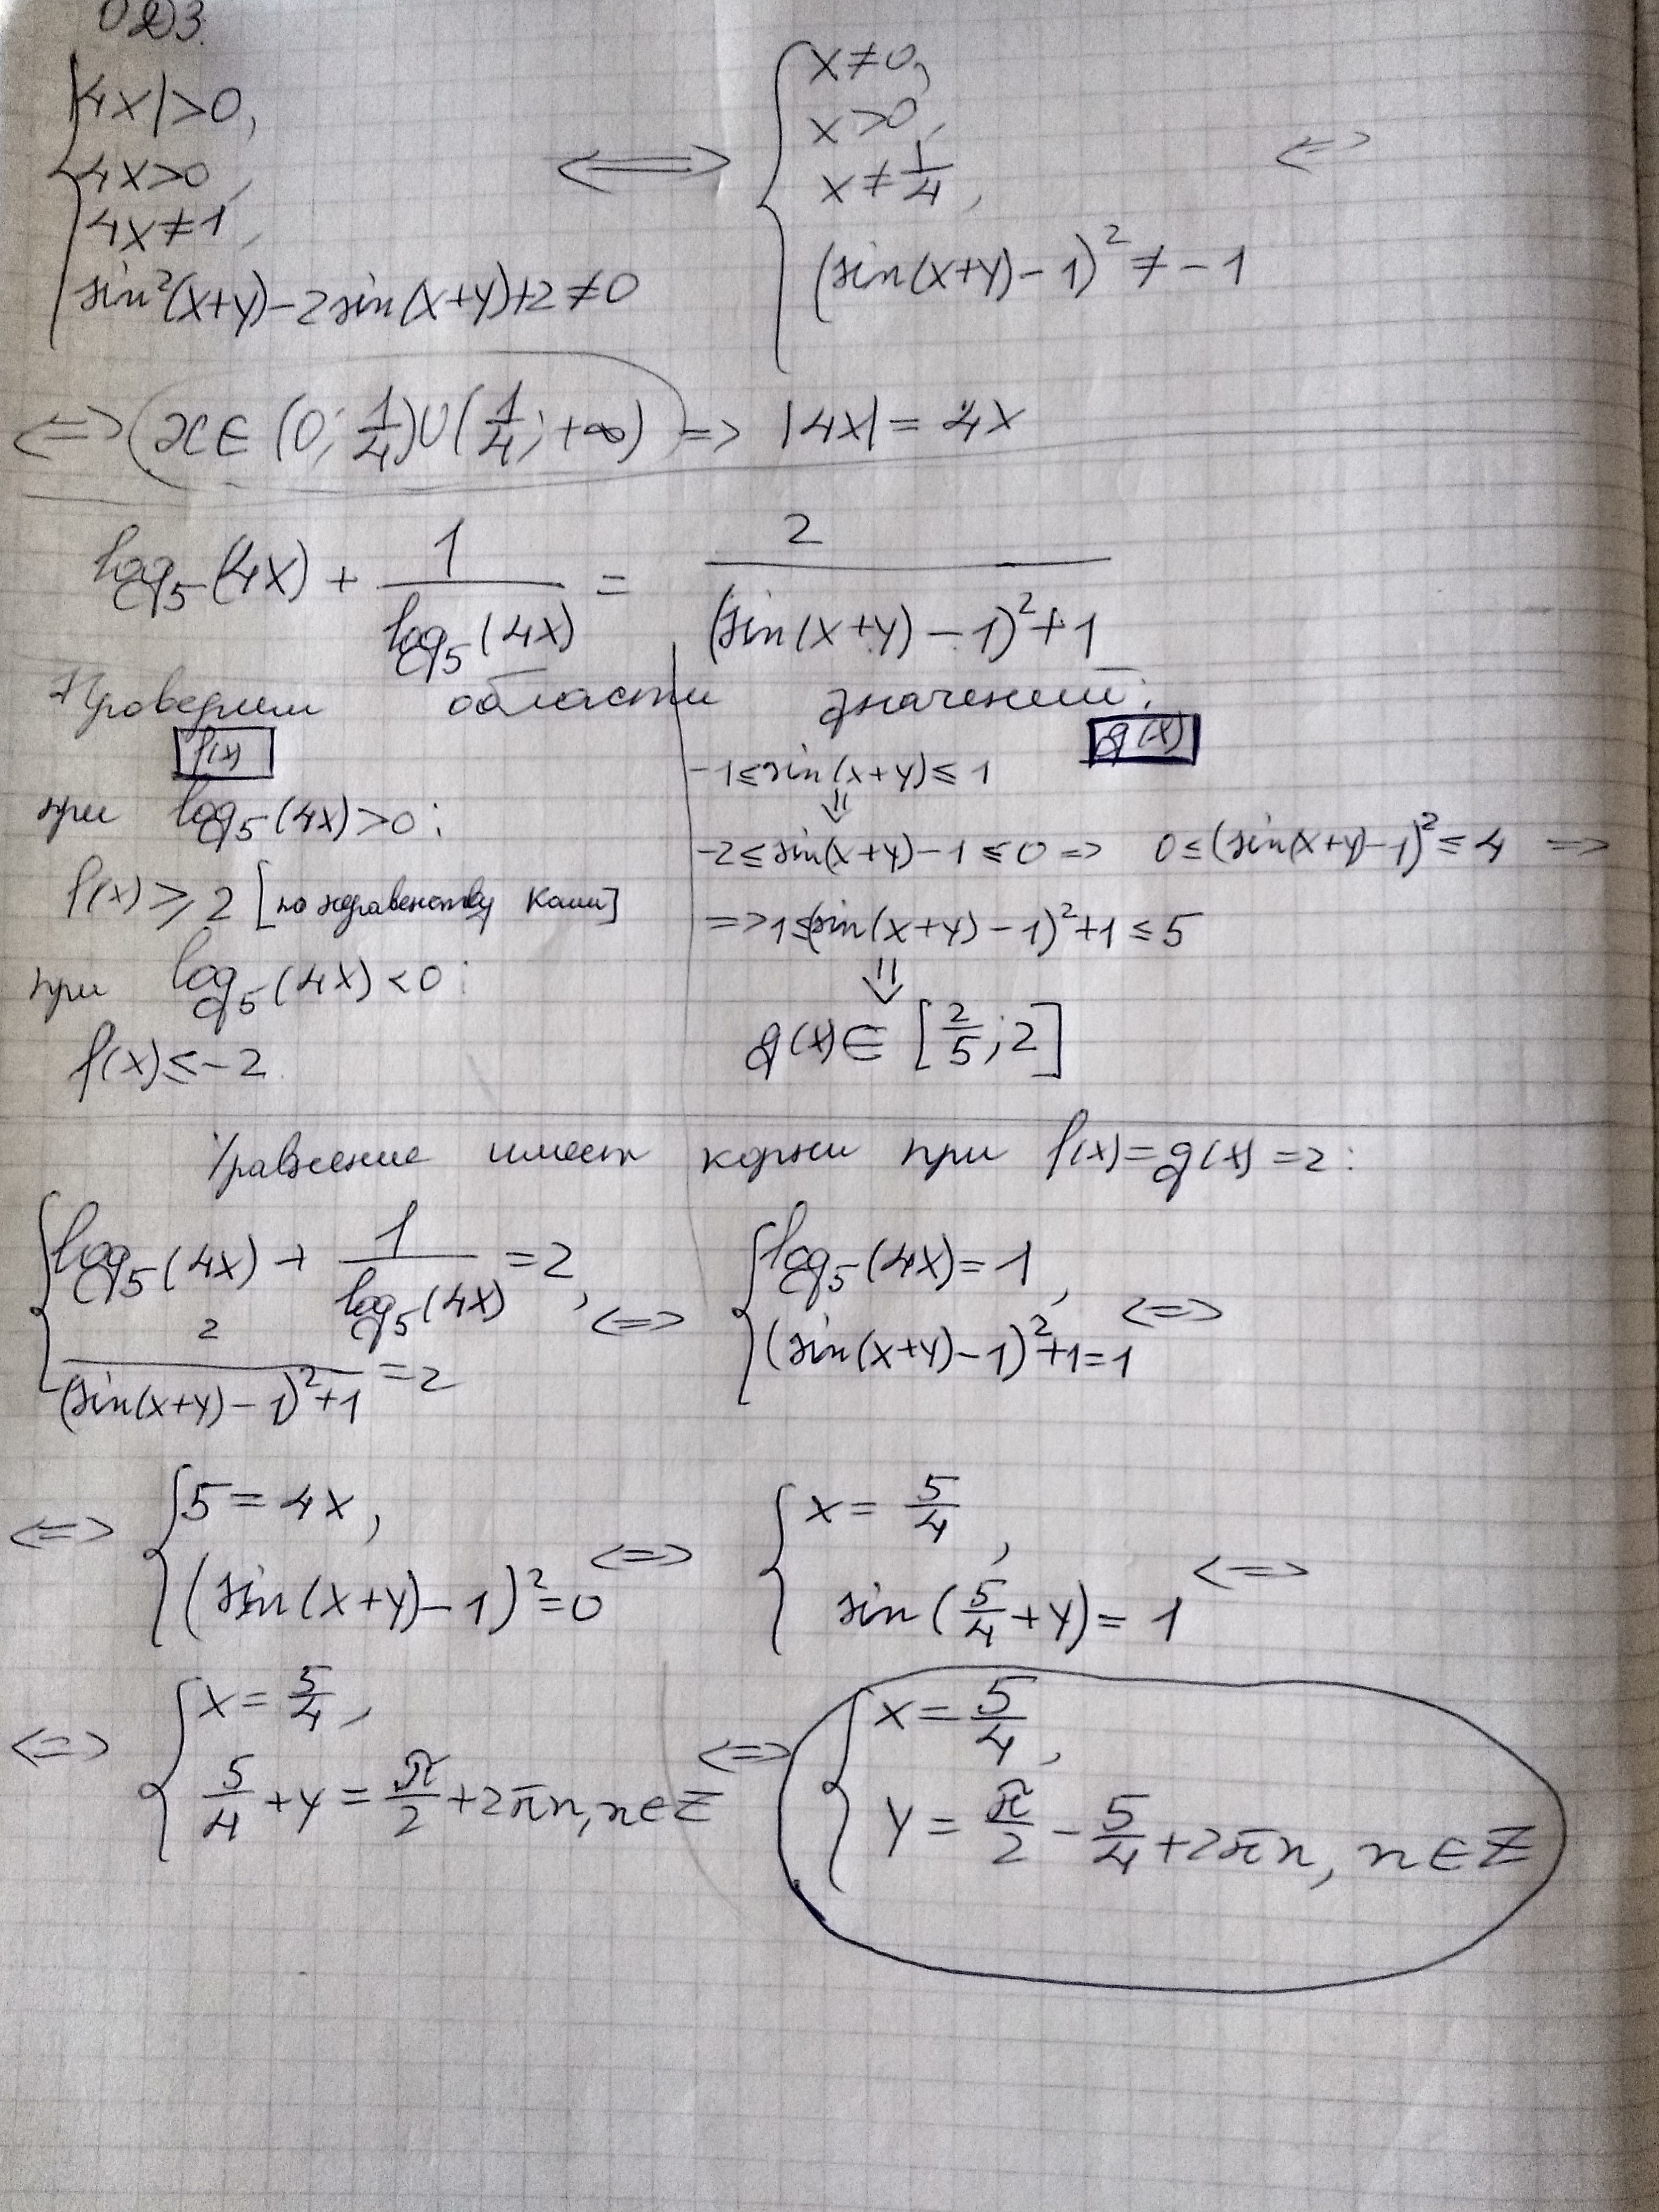 ОДЗ.
{ |4x|>0,
4x>0,
4x≠1,
sin²(x+y)-2sin(x+y)+2≠0
<=> { x≠0,
x>0,
x≠1/4,
(sin(x+y)-1)²≠-1
<=>
<=> x∈(0; 1/4)∪(1/4; +∞) => |4x| = 4x
log₅(4x) + 1/log₅(4x) = 2/((sin(x+y)-1)²+1)
Проверим области значений:
f(x)
при log₅(4x)>0:
f(x)≥2 [по неравенству Коши]
при log₅(4x)<0:
f(x)≤-2
g(x)
-1≤sin(x+y)≤1
⇓
-2≤sin(x+y)-1≤0 => 0≤(sin(x+y)-1)²≤4 =>
=> 1≤(sin(x+y)-1)²+1≤5
⇓
g(x)∈[2/5; 2]
Уравнение имеет корни при f(x)=g(x)=2:
{ log₅(4x) + 1/log₅(4x) = 2,
2/((sin(x+y)-1)²+1) = 2
<=> { log₅(4x)=1,
(sin(x+y)-1)²+1=1
<=>
<=> { 5=4x,
(sin(x+y)-1)²=0
<=> { x=5/4,
sin(5/4+y)=1
<=>
<=> { x=5/4,
5/4+y=π/2+2πn, n∈Z
<=> { x=5/4,
y=π/2-5/4+2πn, n∈Z